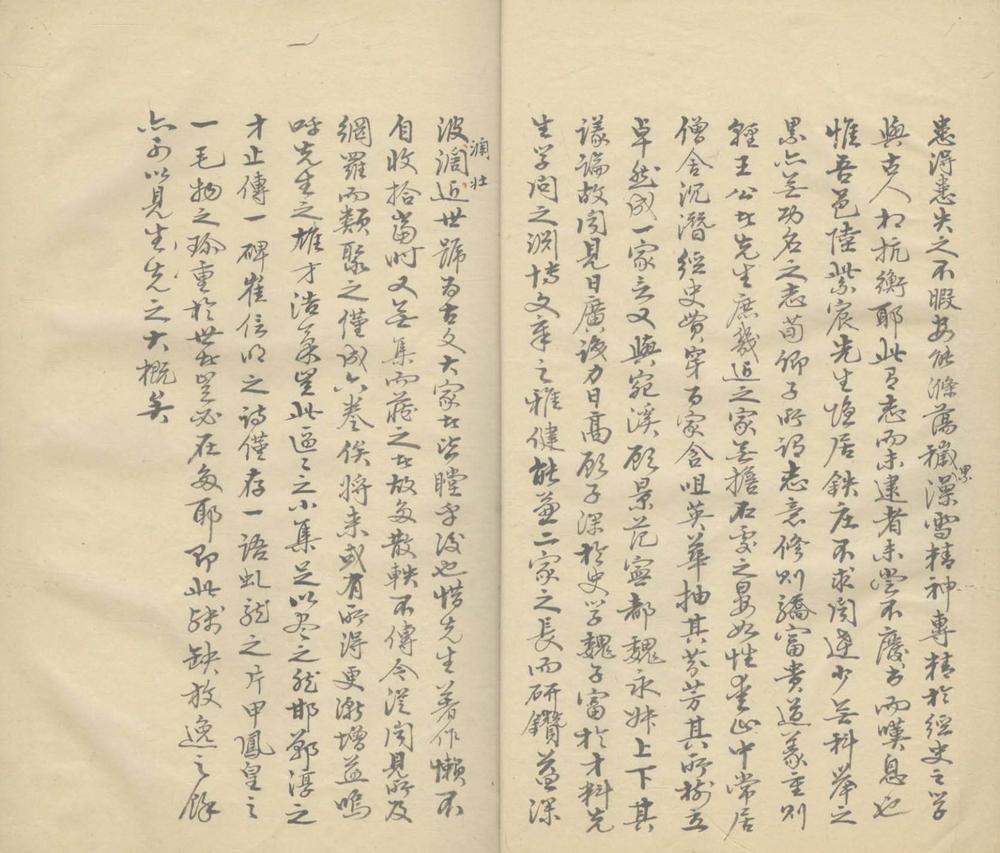 患得患失之不暇安能滌蕩穢累澡雪精神專精於經史之學
與古人相抗衡耶此有志而未逮者未嘗不廢書而嘆息也
惟吾邑陸紫宸先生隱居鉄庄不求聞達少無科舉之
累亦無功名之志荀卿子所謂志意修則驕富貴道義重則
輕王公者先生庶幾近之家無擔石處之晏如性喜山中常居
僧舍沉潛經史貫穿百家含咀英華抽其芬芳其所樹立
卓然成一家言又與宛溪顧景范寧都魏永妹上下其
議論故聞見日廣識力日高顧子深於史學魏子富於才料先
生學問之淵博文章之雅健能兼二家之長而研鑽益深
波瀾壮濶近世號為古文大家者皆瞠乎後也惜先生著作懶不
自收拾當時又無集而藏之者故多散軼不傳今從聞見所及
網羅而類聚之僅成六卷俟將来或有所得更漸增益嗚
呼先生之雄才浩氣豈此區區之小集足以尽之然邯鄲淳之
才止傳一碑崔信明之詩僅存一語虬龍之片甲鳳皇之
一毛物之珍重於世者豈必在多耶即此殘缺放逸之餘
亦可以見先生之大概矣